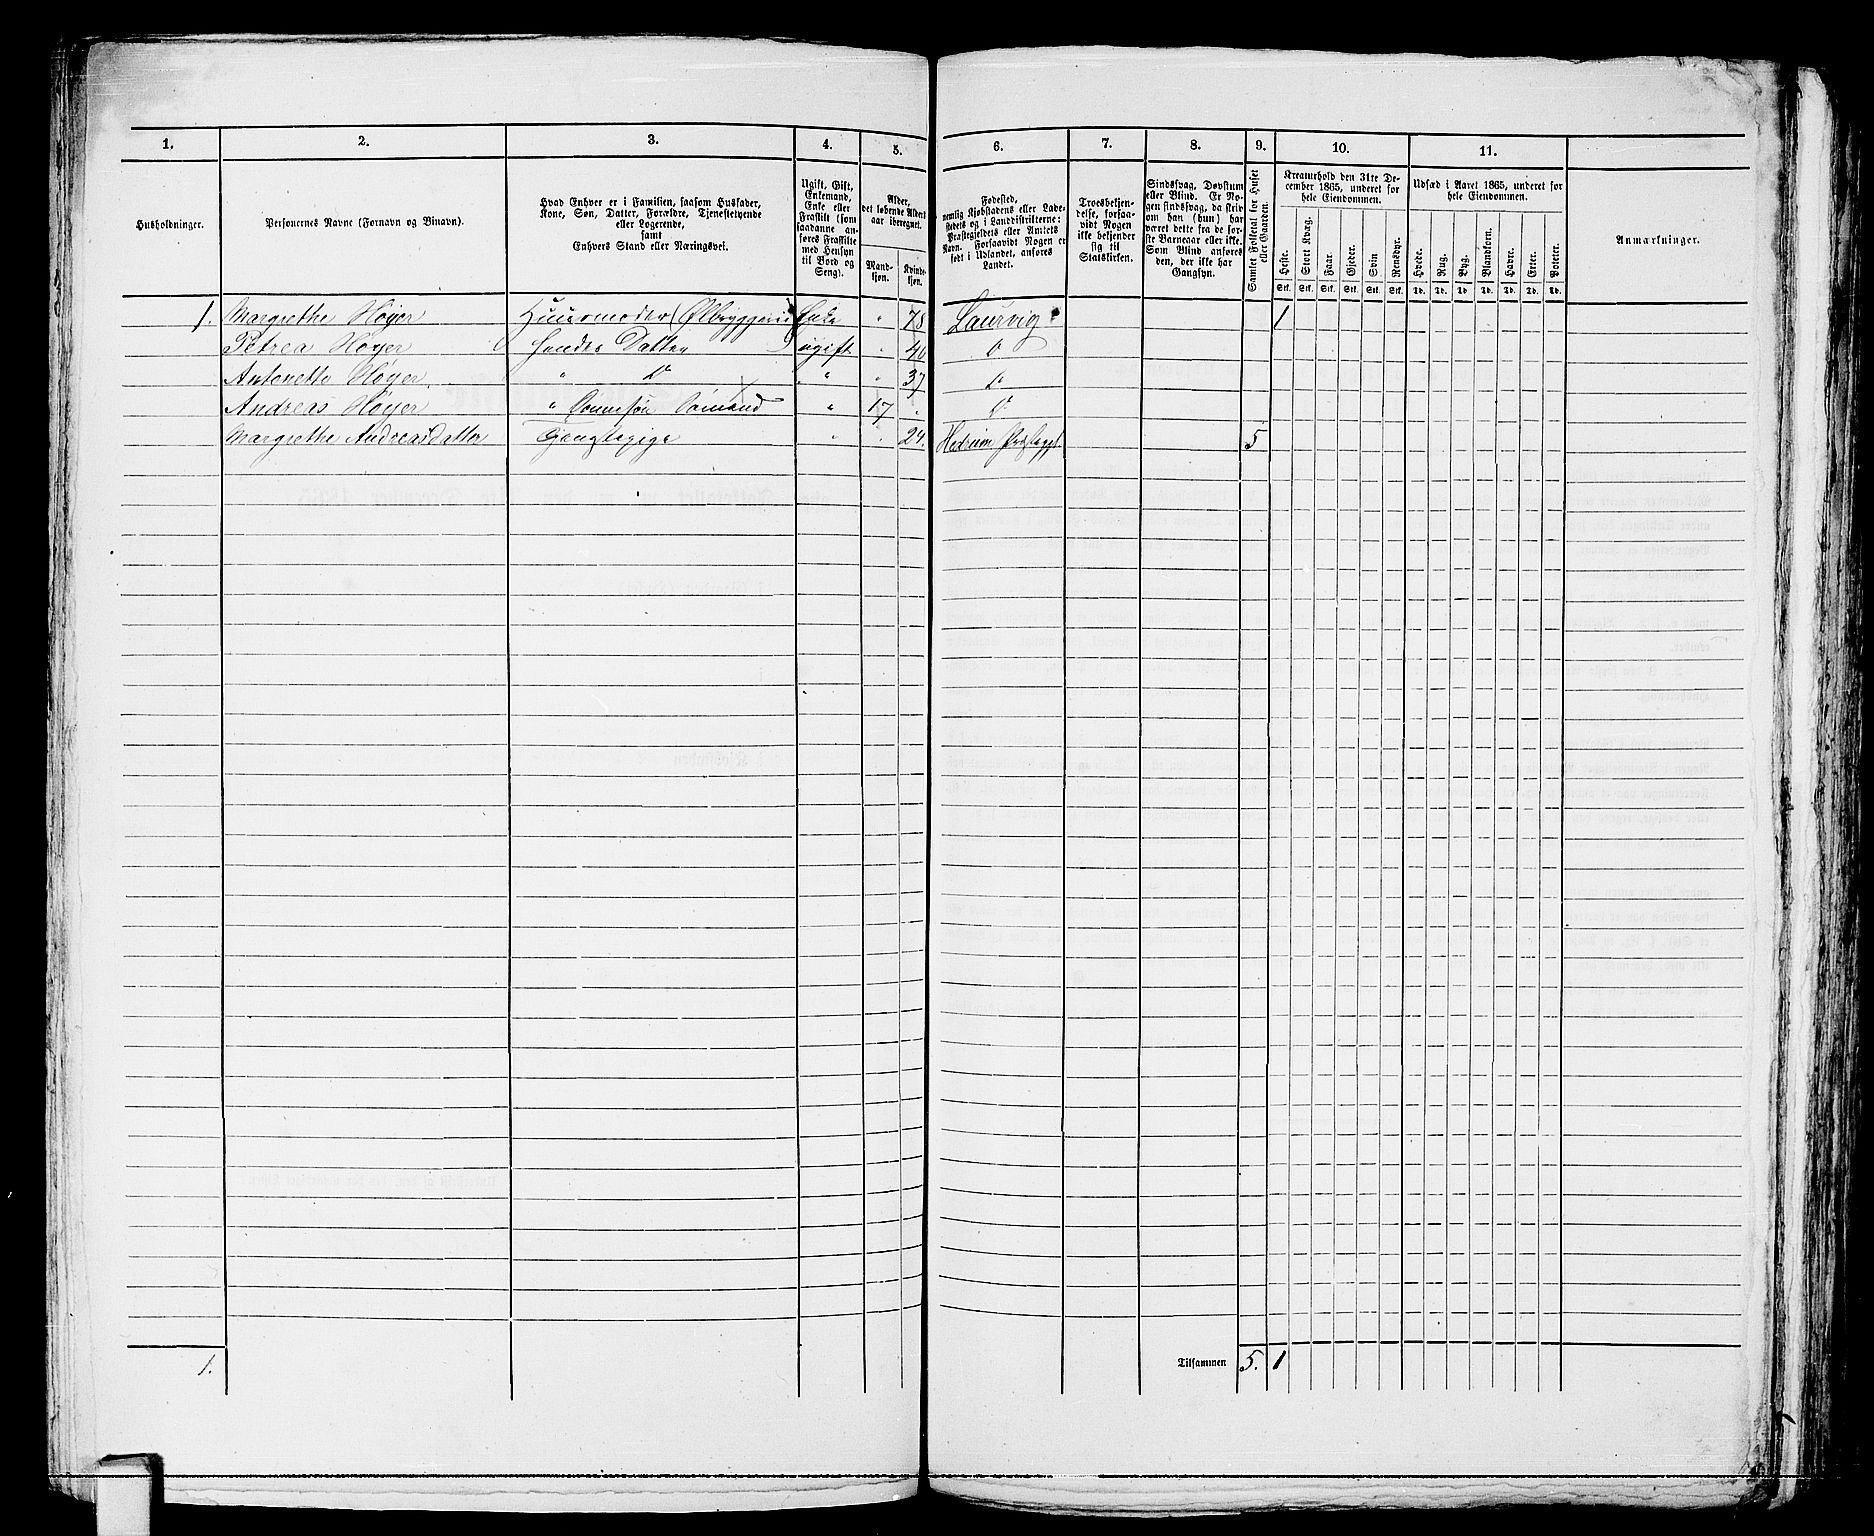 1. 2. 3. 4. 5. 6. 7. 8. 9. 10. 11.
Husholdninger.
Personernes Navne (Fornavn og Binavn).
Hvad Enhver er i Familien, saasom Husfader,
Kone, Søn, Datter, Forældre, Tjenestetyende
eller Logerende,
samt
Enhvers Stand eller Næringsvei.
Ugift, Gift,
Enkemand,
Enke eller
Fraskilt (som
saadanne an-
føres Fraskilte
med Hensyn
til Bord og
Seng).
Alder,
det løbende Alders-
aar iberegnet.
Mand-
kjøn.
Kvinde-
kjøn.
Fødested,
nemlig Kjøbstadens eller Lade-
stedets og i Landdistrikterne:
Præstegjeldets eller Amtets
Navn. Forsaavidt Nogen er
født i Udlandet, anføres
Landet.
Troesbekjen-
delse, forsaa-
vidt Nogen
ikke bekjender
sig til
Statskirken.
Sindssvag, Døvstum
eller Blind. Er No-
gen sindssvag, da skriv
om han (hun) har
været dette fra de før-
ste Barneaar eller ikke.
Som Blind anføres
den, der ikke har
Gangsyn.
Samlet Folketal for Huset
eller Gaarden.
Kreaturhold den 31te De-
cember 1865, underet for
hele Eiendommen.
Heste. Stort Kvæg. Faar. Gjeder. Svin Rensdyr.
Stk. Stk. Stk. Stk. Stk. Stk.
Udsæd i Aaret 1865, underet for
hele Eiendommen.
Hvede. Rug. Byg. Blandkorn. Havre. Erter. Poteter.
Td. Td. Td. Td. Td. Td. Td.
Anmærkninger.
1. Margrethe Høyer Huusmoder (Ølbryggerie) Enke " 78 Laurvig 1
Petrea Høyer hendes Datter ugift " 40 D
Antonette Høyer. " D " " 37 D
Andreas Høyer " Sønnesøn Sømand " 17 " D
Margrethe Andreasdatter Tjenestepige " " 24. Hedrum 5
1. Tilsammen 5. 1